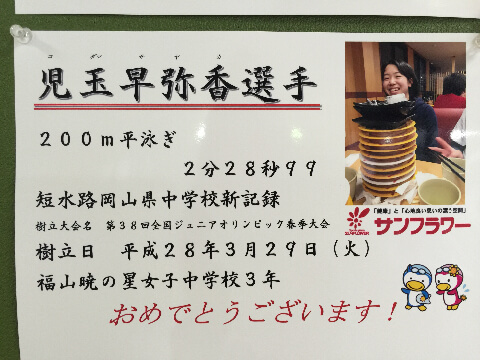 コダマ サヤカ
児玉早弥香選手
200m平泳ぎ
2分28秒99
短水路岡山県中学校新記録
樹立大会名 第38回全国ジュニアオリンピック春季大会
樹立日 平成28年3月29日(火)
福山暁の星女子中学校3年
おめでとうございます!
「健康」と「心地良い憩いの漂う空間」
サンフラワー
SUNFLOWER